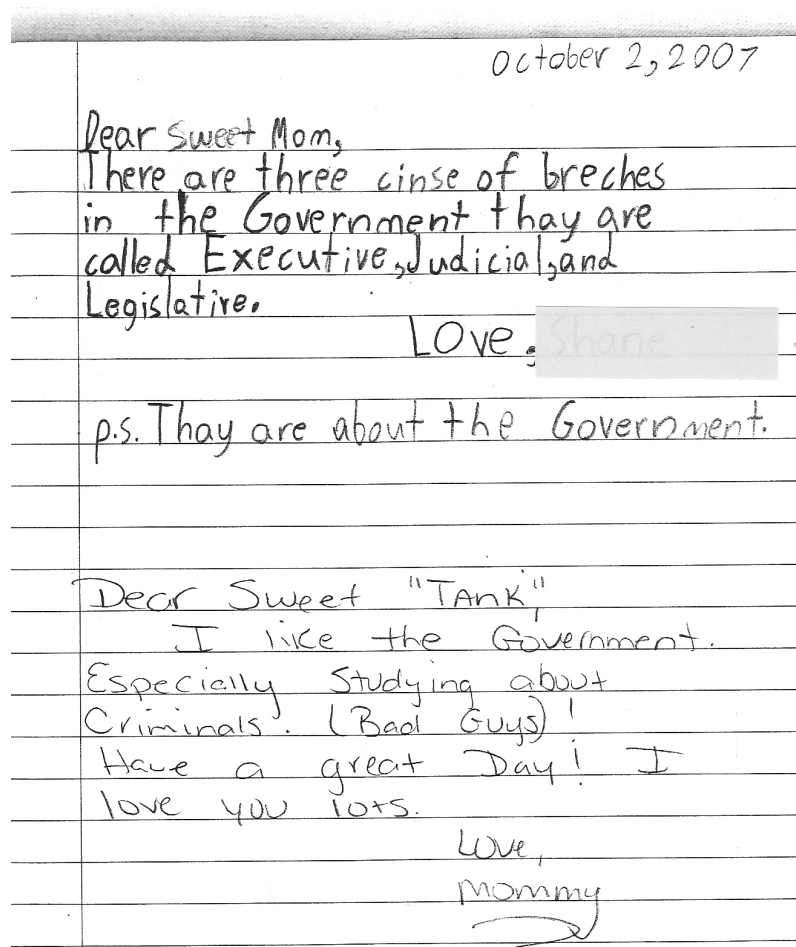 October 2, 2007
Dear Sweet Mom,
There are three cinse of breches
in the Government thay are
called Executive, Judicial, and
Legislative.
Love,
p.s. Thay are about the Government.
Dear Sweet "Tank",
I like the Government.
Especially Studying about
Criminals. (Bad Guys)!
Have a great Day! I
love you lots.
Love,
Mommy